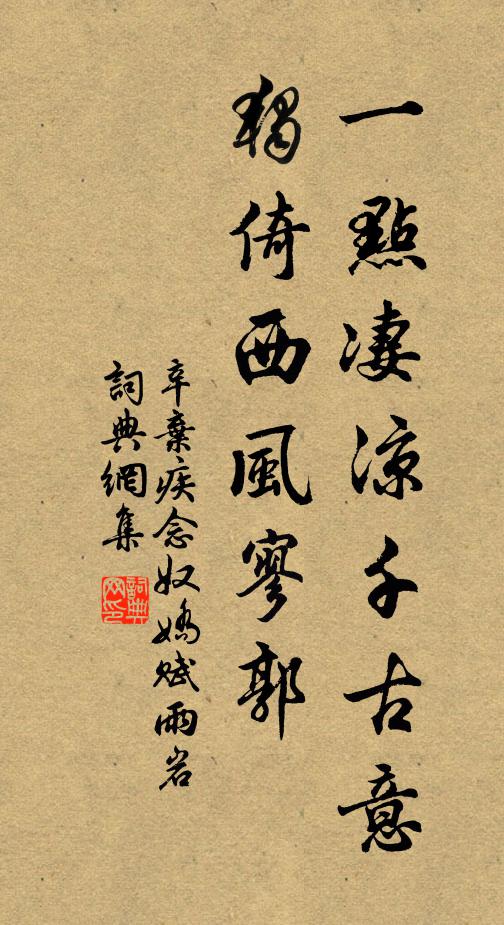 一點淒涼千古意
獨倚西風寥郭
辛棄疾念奴嬌賦雨岩
詞典網集
詞典網印